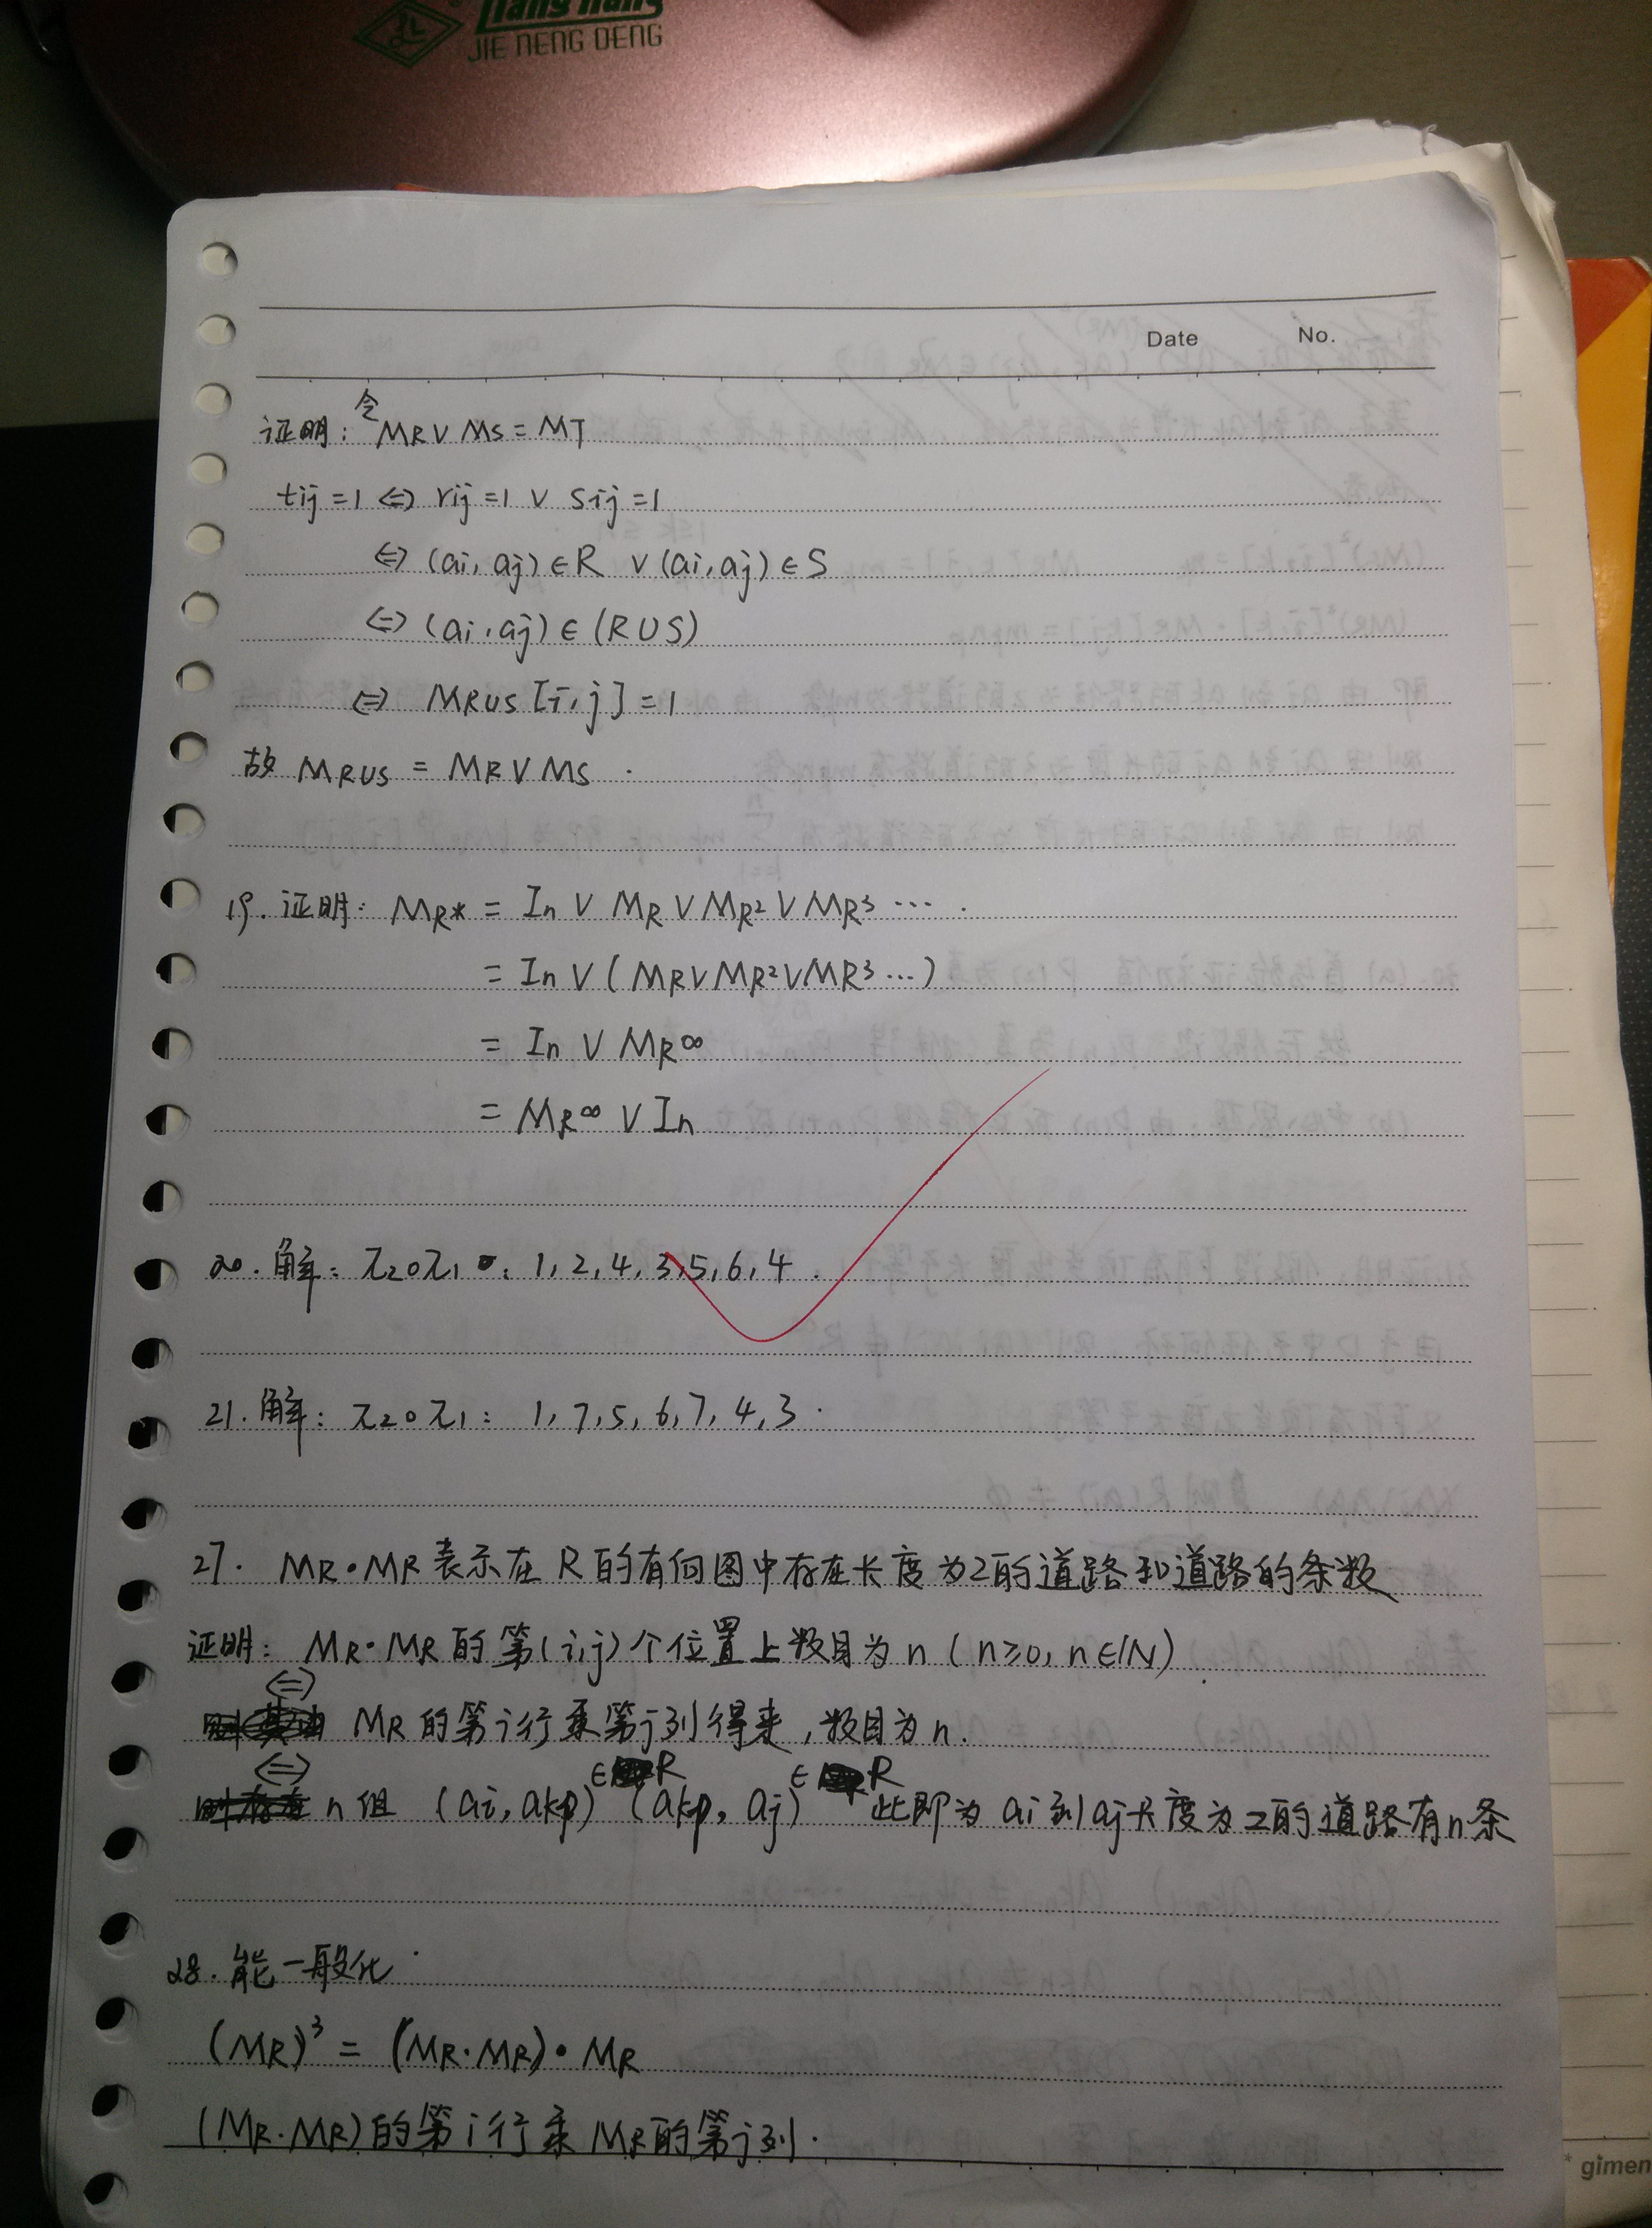 Liang Liang
JIE NENG DENG
Date No.
证明: 令 MR∨MS=MT
tij=1 ⇔ rij=1 ∨ sij=1
⇔ (ai, aj)∈R ∨(ai,aj)∈S
⇔ (ai,aj)∈(RUS)
⇔ MRUS[i,j]=1
故 MRUS = MR∨MS.
19. 证明: MR* = In ∨ MR∨MR²∨MR³ ….
= In∨(MR∨MR²∨MR³…)
= In ∨ MR∞
= MR∞∨In
20. 解: π2∘π1: 1,2,4,3,5,6,4.
21. 解: π2∘π1: 1,7,5,6,7,4,3.
27. MR·MR表示在R的有向图中存在长度为2的道路和道路的条数
证明: MR·MR的第(i,j)个位置上数目为n(n≥0,n∈N)
⇔ MR的第i行乘第j列得来,数目为n.
⇔ n组 (ai, akp)∈R (akp, aj)∈R 此即为ai到aj长度为2的道路有n条
28. 能一般化.
(MR)³ = (MR·MR)·MR
(MR·MR)的第i行乘MR的第j列.
gimen